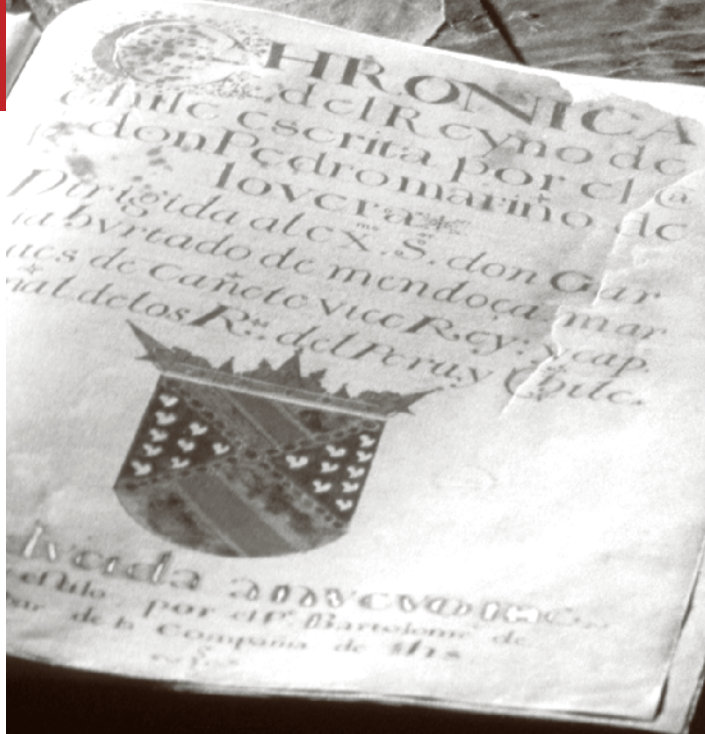 CHRONICA
del Reyno de
Chile escrita por el @
don Pedro mariño de
lovera
Dirigida al exᵐᵒ. S.ᵒʳ don Gar
ia hurtado de mendoça mar
ues de cañete vice Rey: y cap.
ral de los R.ˢ del Peru, y Chile.
lucida a nuevo
estilo por el Pᵉ. Bartolome de
bar de la Compañia de